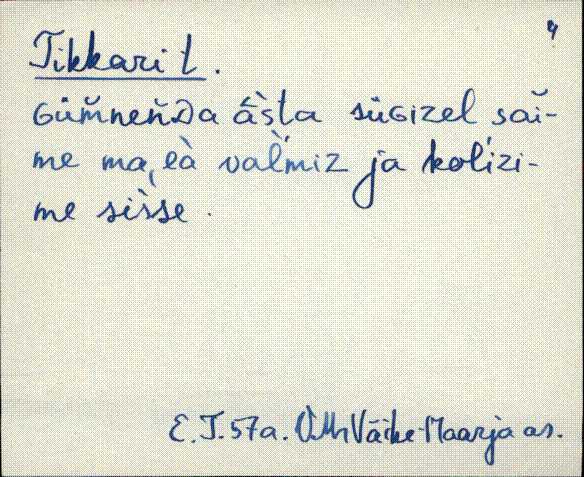 4
Tikkari t.
Güm̆neňDa âs̀ta süGizel saĭ-
me ma,eà val̀miz ja koĺizi-
me sis̀se.
E.T.57a. VMr Väike-Maarja as.